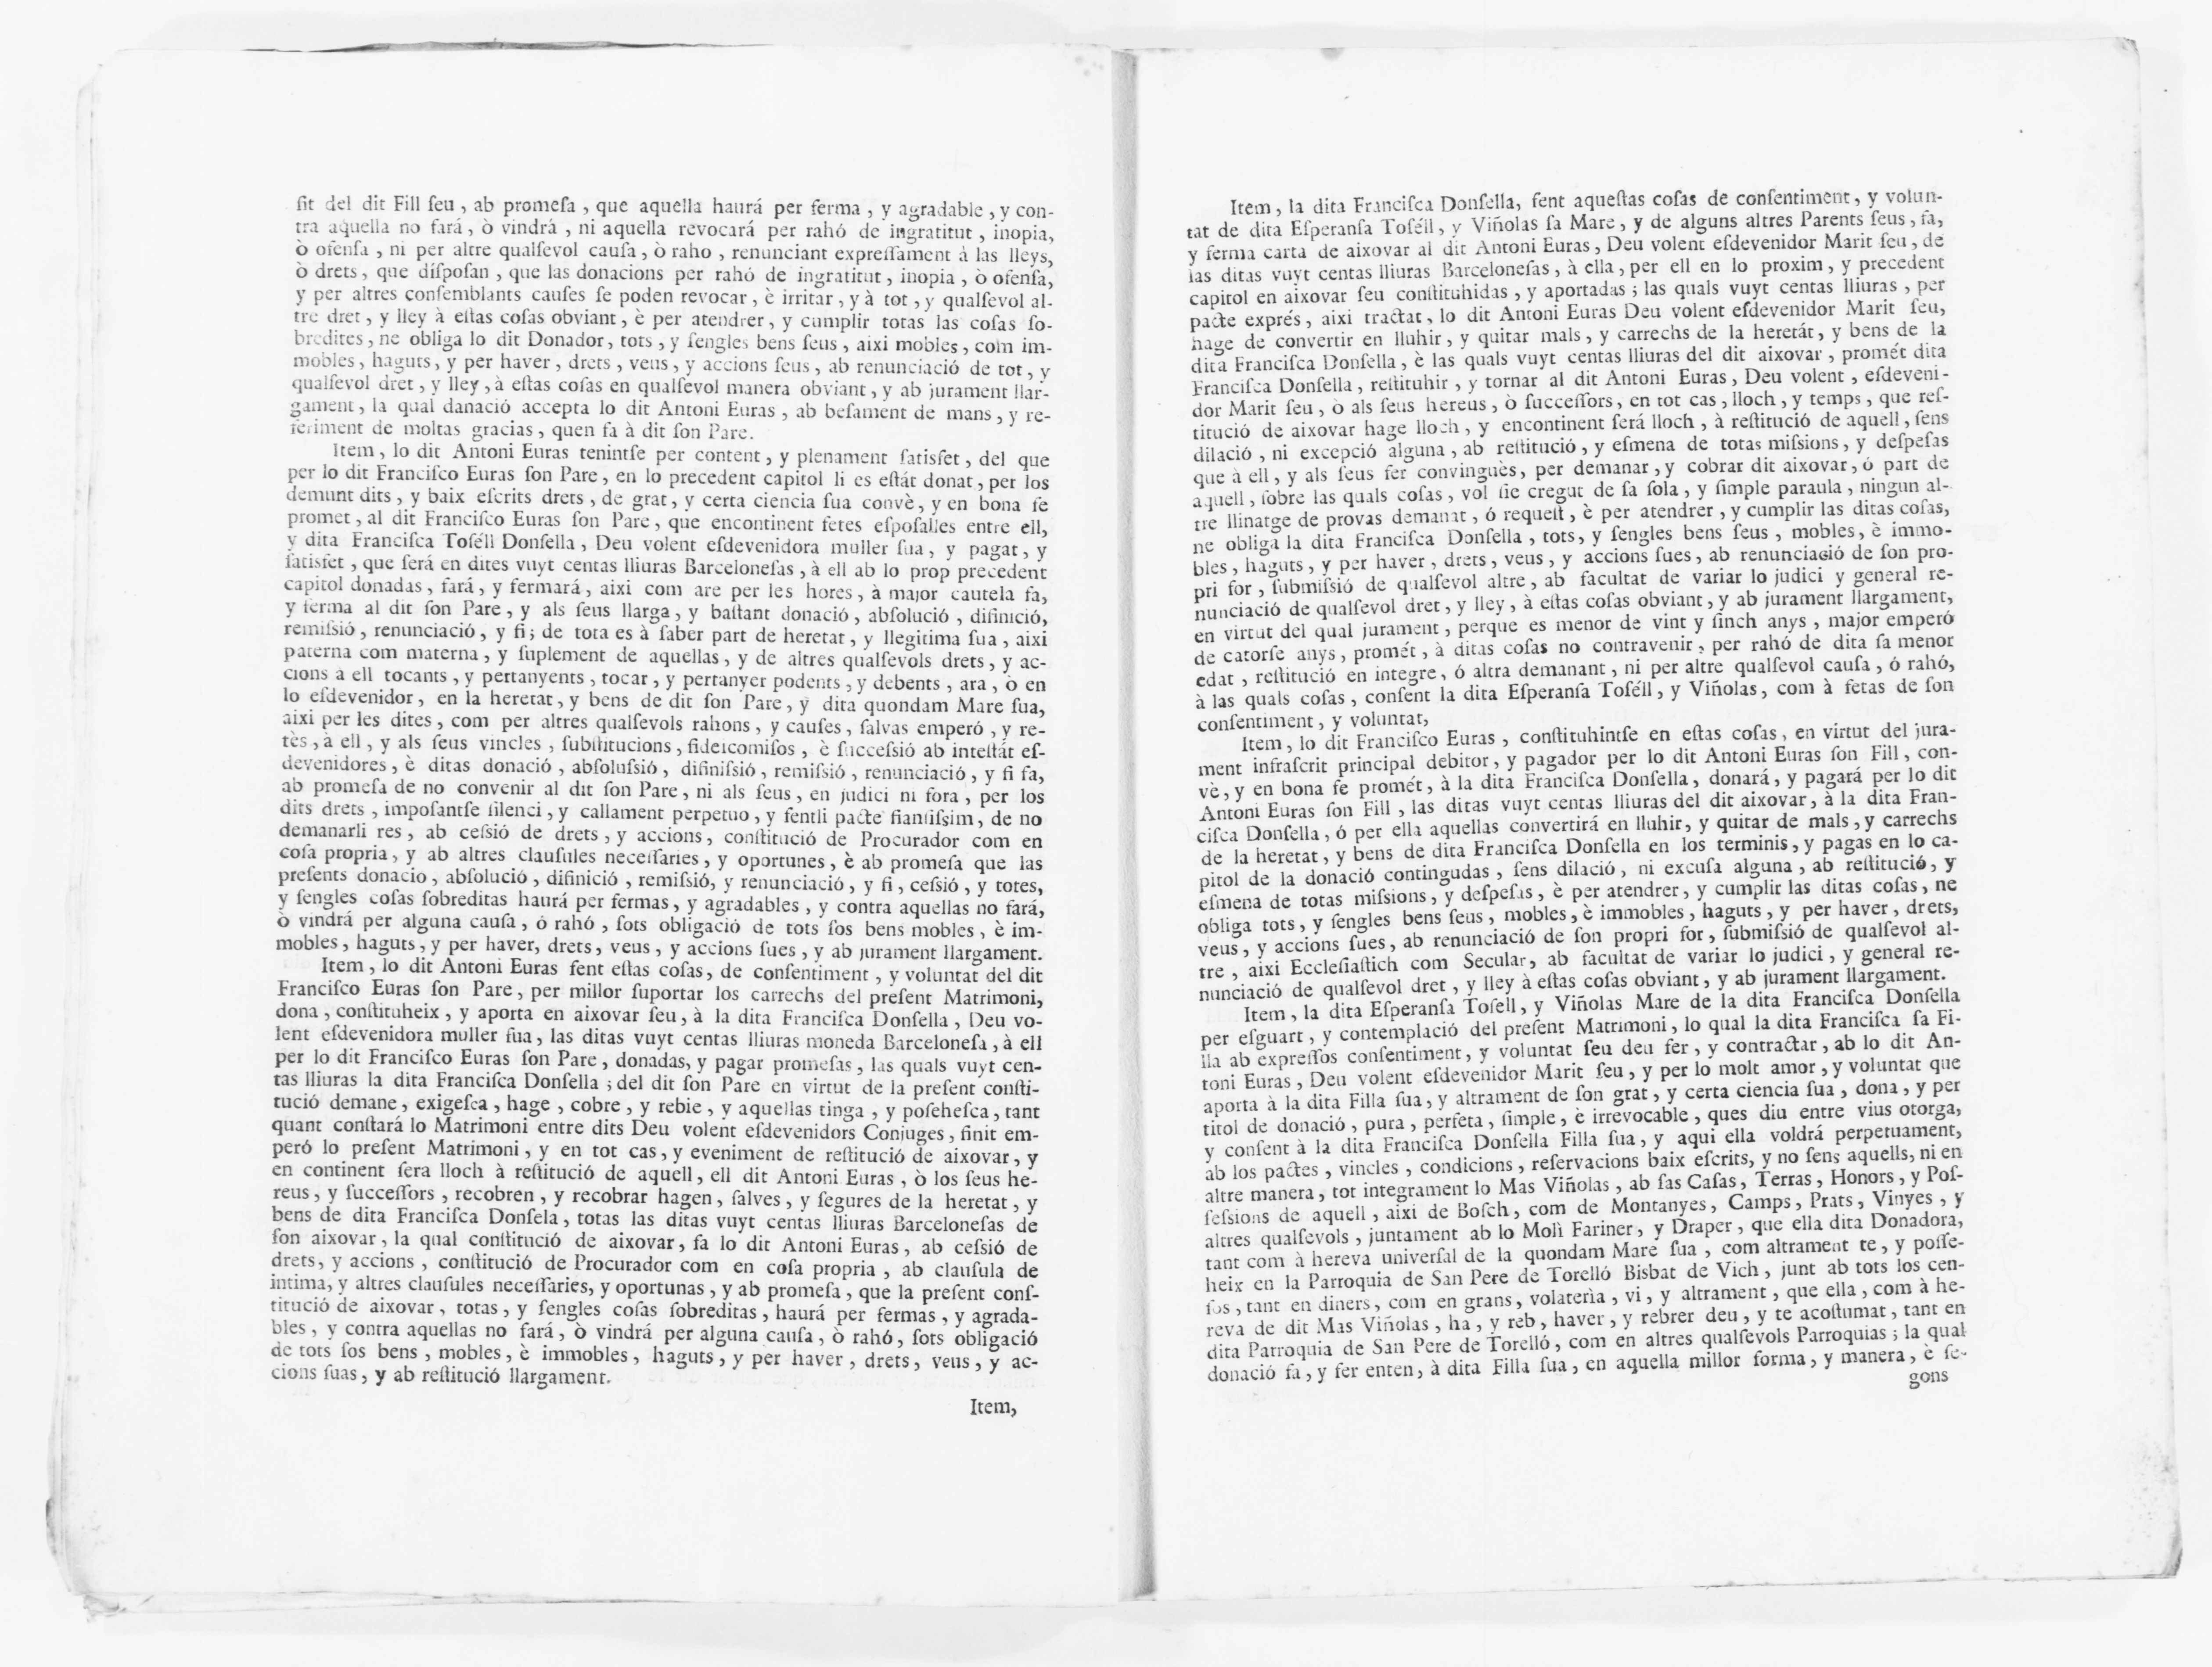 ſit del dit Fill ſeu, ab promeſa, que aquella haurá per ferma, y agradable, y con-
tra aquella no fará, ò vindrá, ni aquella revocará per rahó de ingratitut, inopia,
ò ofenſa, ni per altre qualſevol cauſa, ò raho, renunciant expreſſament à las lleys,
ò drets, que diſpoſan, que las donacions per rahó de ingratitut, inopia, ò ofenſa,
y per altres conſemblants cauſes ſe poden revocar, è irritar, y à tot, y qualſevol al-
tre dret, y lley à eſtas coſas obviant, è per atendrer, y cumplir totas las coſas ſo-
bredites, ne obliga lo dit Donador, tots, y ſengles bens ſeus, aixi mobles, com im-
mobles, haguts, y per haver, drets, veus, y accions ſeus, ab renunciació de tot, y
qualſevol dret, y lley, à eſtas coſas en qualſevol manera obviant, y ab jurament llar-
gament, la qual danació accepta lo dit Antoni Euras, ab beſament de mans, y re-
feriment de moltas gracias, quen fa à dit ſon Pare.
Item, lo dit Antoni Euras tenintſe per content, y plenament ſatisfet, del que
per lo dit Franciſco Euras ſon Pare, en lo precedent capitol li es eſtát donat, per los
demunt dits, y baix eſcrits drets, de grat, y certa ciencia ſua convè, y en bona fe
promet, al dit Franciſco Euras ſon Pare, que encontinent fetes eſpoſalles entre ell,
y dita Franciſca Toſéll Donſella, Deu volent eſdevenidora muller ſua, y pagat, y
ſatisfet, que ferá en dites vuyt centas lliuras Barceloneſas, à ell ab lo prop precedent
capitol donadas, fará, y fermará, aixi com are per les hores, à major cautela fa,
y ferma al dit ſon Pare, y als ſeus llarga, y baſtant donació, abſolució, difinició,
remiſsió, renunciació, y fi; de tota es à ſaber part de heretat, y llegitima ſua, aixi
paterna com materna, y ſuplement de aquellas, y de altres qualſevols drets, y ac-
cions a ell tocants, y pertanyents, tocar, y pertanyer podents, y debents, ara, ò en
lo eſdevenidor, en la heretat, y bens de dit ſon Pare, y dita quondam Mare ſua,
aixi per les dites, com per altres qualſevols rahons, y cauſes, ſalvas emperó, y re-
tès, à ell, y als ſeus vincles, ſubſtitucions, fideicomiſos, è ſucceſsió ab inteſtát eſ-
devenidores, è ditas donació, abſoluſsió, difiniſsió, remiſsió, renunciació, y fi fa,
ab promeſa de no convenir al dit ſon Pare, ni als ſeus, en judici ni fora, per los
dits drets, impoſantſe ſilenci, y callament perpetuo, y fentli pacte fianſiſsim, de no
demanarli res, ab ceſsió de drets, y accions, conſtitució de Procurador com en
coſa propria, y ab altres clauſules neceſſaries, y oportunes, è ab promeſa que las
preſents donacio, abſolució, difinició, remiſsió, y renunciació, y fi, ceſsió, y totes,
y ſengles coſas ſobreditas haurá per fermas, y agradables, y contra aquellas no fará,
ò vindrá per alguna cauſa, ó rahó, ſots obligació de tots ſos bens mobles, è im-
mobles, haguts, y per haver, drets, veus, y accions ſues, y ab jurament llargament.
Item, lo dit Antoni Euras fent eſtas coſas, de conſentiment, y voluntat del dit
Franciſco Euras ſon Pare, per millor ſuportar los carrechs del preſent Matrimoni,
dona, conſtituheix, y aporta en aixovar ſeu, à la dita Franciſca Donſella, Deu vo-
lent eſdevenidora muller ſua, las ditas vuyt centas lliuras moneda Barceloneſa, à ell
per lo dit Franciſco Euras ſon Pare, donadas, y pagar promeſas, las quals vuyt cen-
tas lliuras la dita Franciſca Donſella; del dit ſon Pare en virtut de la preſent conſti-
tució demane, exigeſca, hage, cobre, y rebie, y aquellas tinga, y poſeheſca, tant
quant conſtará lo Matrimoni entre dits Deu volent eſdevenidors Conjuges, finit em-
peró lo preſent Matrimoni, y en tot cas, y eveniment de reſtitució de aixovar, y
en continent ſera lloch à reſtitució de aquell, ell dit Antoni Euras, ò los ſeus he-
reus, y ſucceſſors, recobren, y recobrar hagen, ſalves, y ſegures de la heretat, y
bens de dita Franciſca Donſela, totas las ditas vuyt centas lliuras Barceloneſas de
ſon aixovar, la qual conſtitució de aixovar, fa lo dit Antoni Euras, ab ceſsió de
drets, y accions, conſtitució de Procurador com en coſa propria, ab clauſula de
intima, y altres clauſules neceſſaries, y oportunas, y ab promeſa, que la preſent conſ-
titució de aixovar, totas, y ſengles coſas ſobreditas, haurá per fermas, y agrada-
bles, y contra aquellas no fará, ò vindrá per alguna cauſa, ò rahó, ſots obligació
de tots ſos bens, mobles, è immobles, haguts, y per haver, drets, veus, y ac-
cions ſuas, y ab reſtitució llargament.
Item,
Item, la dita Franciſca Donſella, fent aqueſtas coſas de conſentiment, y volun-
tat de dita Eſperanſa Toſéll, y Viñolas ſa Mare, y de alguns altres Parents ſeus, fa,
y ferma carta de aixovar al dit Antoni Euras, Deu volent eſdevenidor Marit ſeu, de
las ditas vuyt centas lliuras Barceloneſas, à ella, per ell en lo proxim, y precedent
capitol en aixovar ſeu conſtituhidas, y aportadas; las quals vuyt centas lliuras, per
pacte exprés, aixi tractat, lo dit Antoni Euras Deu volent eſdevenidor Marit ſeu,
hage de convertir en lluhir, y quitar mals, y carrechs de la heretát, y bens de la
dita Franciſca Donſella, è las quals vuyt centas lliuras del dit aixovar, promét dita
Franciſca Donſella, reſtituhir, y tornar al dit Antoni Euras, Deu volent, eſdeveni-
dor Marit ſeu, ò als ſeus hereus, ò ſucceſſors, en tot cas, lloch, y temps, que reſ-
titució de aixovar hage lloch, y encontinent ferá lloch, à reſtitució de aquell, ſens
dilació, ni excepció alguna, ab reſtitució, y eſmena de totas miſsions, y deſpeſas
que à ell, y als ſeus fer convinguès, per demanar, y cobrar dit aixovar, ó part de
aquell, ſobre las quals coſas, vol ſie cregut de ſa ſola, y ſimple paraula, ningun al-
tre llinatge de provas demanat, ó requeſt, è per atendrer, y cumplir las ditas coſas,
ne obliga la dita Franciſca Donſella, tots, y ſengles bens ſeus, mobles, è immo-
bles, haguts, y per haver, drets, veus, y accions ſues, ab renunciació de ſon pro-
pri for, ſubmiſsió de qualſevol altre, ab facultat de variar lo judici y general re-
nunciació de qualſevol dret, y lley, à eſtas coſas obviant, y ab jurament llargament,
en virtut del qual jurament, perque es menor de vint y ſinch anys, major emperó
de catorſe anys, promét, à ditas coſas no contravenir, per rahó de dita ſa menor
edat, reſtitució en integre, ó altra demanant, ni per altre qualſevol cauſa, ó rahó,
à las quals coſas, conſent la dita Eſperanſa Toſéll, y Viñolas, com à fetas de ſon
conſentiment, y voluntat,
Item, lo dit Franciſco Euras, conſtituhintſe en eſtas coſas, en virtut del jura-
ment infraſcrit principal debitor, y pagador per lo dit Antoni Euras ſon Fill, con-
vè, y en bona fe promét, à la dita Franciſca Donſella, donará, y pagará per lo dit
Antoni Euras ſon Fill, las ditas vuyt centas lliuras del dit aixovar, à la dita Fran-
ciſca Donſella, ó per ella aquellas convertirá en lluhir, y quitar de mals, y carrechs
de la heretat, y bens de dita Franciſca Donſella en los terminis, y pagas en lo ca-
pitol de la donació contingudas, ſens dilació, ni excuſa alguna, ab reſtitució, y
eſmena de totas miſsions, y deſpeſas, è per atendrer, y cumplir las ditas coſas, ne
obliga tots, y ſengles bens ſeus, mobles, è immobles, haguts, y per haver, drets,
veus, y accions ſues, ab renunciació de ſon propri for, ſubmiſsió de qualſevol al-
tre, aixi Eccleſiaſtich com Secular, ab facultat de variar lo judici, y general re-
nunciació de qualſevol dret, y lley à eſtas coſas obviant, y ab jurament llargament.
Item, la dita Eſperanſa Toſell, y Viñolas Mare de la dita Franciſca Donſella
per eſguart, y contemplació del preſent Matrimoni, lo qual la dita Franciſca ſa Fi-
lla ab expreſſos conſentiment, y voluntat ſeu deu fer, y contractar, ab lo dit An-
toni Euras, Deu volent eſdevenidor Marit ſeu, y per lo molt amor, y voluntat que
aporta à la dita Filla ſua, y altrament de ſon grat, y certa ciencia ſua, dona, y per
titol de donació, pura, perfeta, ſimple, è irrevocable, ques diu entre vius otorga,
y conſent à la dita Franciſca Donſella Filla ſua, y aqui ella voldrá perpetuament,
ab los pactes, vincles, condicions, reſervacions baix eſcrits, y no ſens aquells, ni en
altre manera, tot integrament lo Mas Viñolas, ab ſas Caſas, Terras, Honors, y Poſ-
ſeſsions de aquell, aixi de Boſch, com de Montanyes, Camps, Prats, Vinyes, y
altres qualſevols, juntament ab lo Molì Fariner, y Draper, que ella dita Donadora,
tant com à hereva univerſal de la quondam Mare ſua, com altrament te, y poſſe-
heix en la Parroquia de San Pere de Torelló Bisbat de Vich, junt ab tots los cen-
ſos, tant en diners, com en grans, volateria, vi, y altrament, que ella, com à he-
reva de dit Mas Viñolas, ha, y reb, haver, y rebrer deu, y te acoſtumat, tant en
dita Parroquia de San Pere de Torelló, com en altres qualſevols Parroquias; la qual
donació fa, y fer enten, à dita Filla ſua, en aquella millor forma, y manera, è ſe-
gons